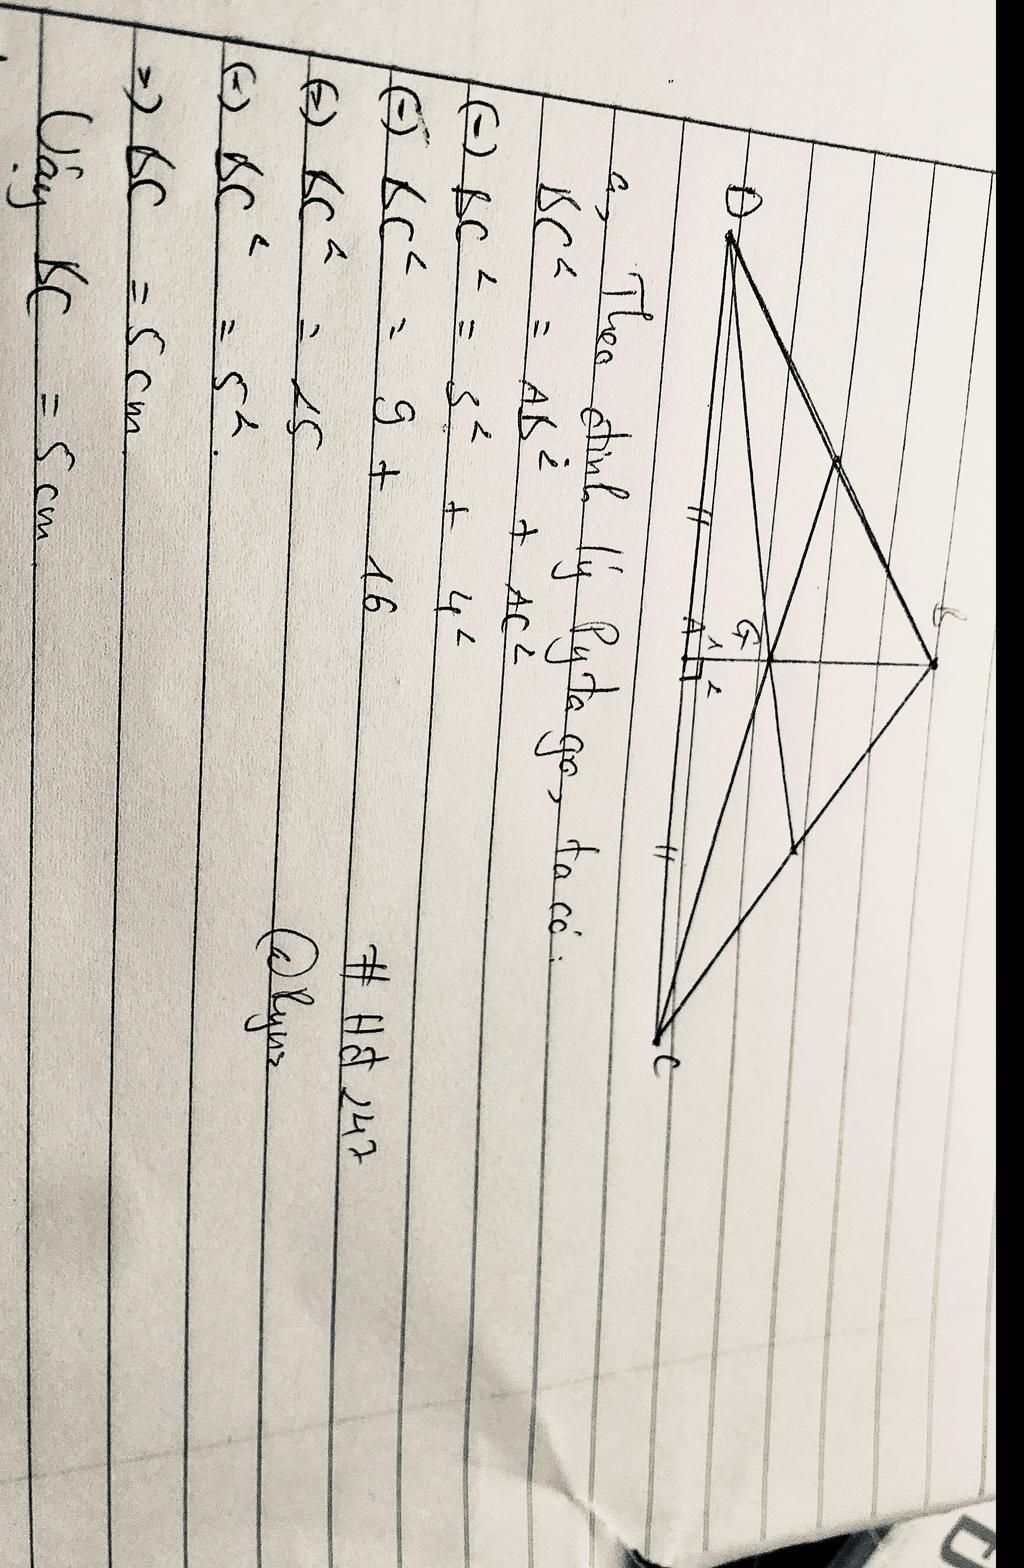 B
D
G
A
1
2
C
a, Theo định lý Pytago, ta có:
BC² = AB² + AC²
(=) BC² = 3² + 4²
(=) BC² = 9 + 16
(=) BC² = 25
(=) BC² = 5².
=) BC = 5cm
Vậy BC = 5cm
# Hđ247